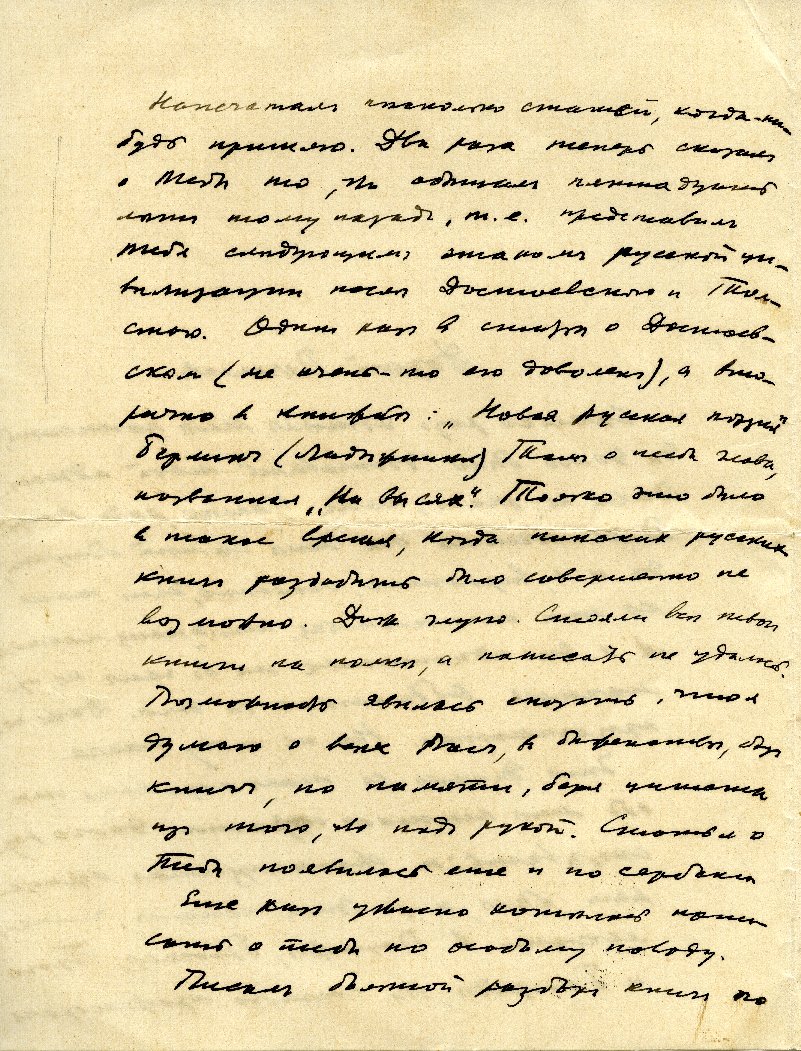 Напечаталъ несколько статей, когда-ни-
будь пришлю. Два раза теперь сказалъ
о Тебѣ то, что пятнадцать
лѣтъ тому назадъ, т.е. представилъ
Тебя слѣдующимъ этапомъ русской ци-
вилизаціи послѣ Достоевского и Тол-
стого. Одинъ разъ в статьѣ о Достоев-
ском (не очень-то ею доволенъ), а вто-
рично в книжкѣ: „Новая русская поэзія"
Берлинъ (Ладыжникъ) Тамъ о тебѣ глава,
названная „На высях". Только это было
в такое время, когда никаких русских
книгъ раздобыть было совершенно не
возможно. Стояли всѣ
книги на полкѣ, а написать не удалось.
Возможность явилась сказать, что я
думаю о всех Васъ, в , без
книгъ, по памяти, беря цитаты
из того, что подъ рукой. Статья о
Тебѣ появилась еще и по сербски
Еще разъ ужасно хотѣлось напи-
сать о тебѣ по особому поводу.
Писалъ большой разборъ книги по